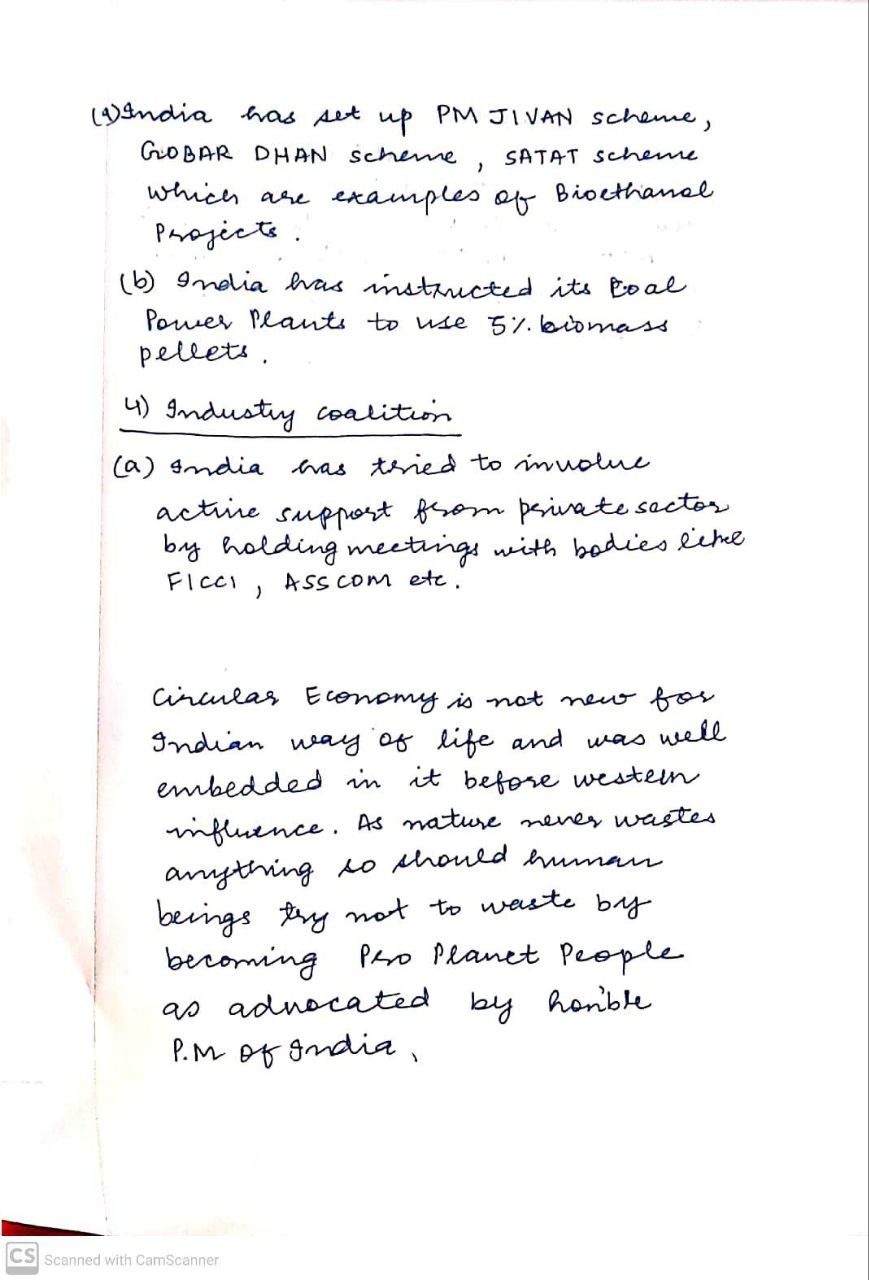 (a) India has set up PM JIVAN scheme,
GOBAR DHAN scheme, SATAT scheme
which are examples of Bioethanol
Projects.
(b) India has instructed its Coal
Power Plants to use 5% biomass
pellets.
4) Industry coalition
(a) India has tried to involve
active support from private sector
by holding meetings with bodies like
FICCI, ASSCOM etc.
Circular Economy is not new for
Indian way of life and was well
embedded in it before western
influence. As nature never wastes
anything so should human
beings try not to waste by
becoming Pro Planet People
as advocated by hon'ble
P.M of India.
CS Scanned with CamScanner